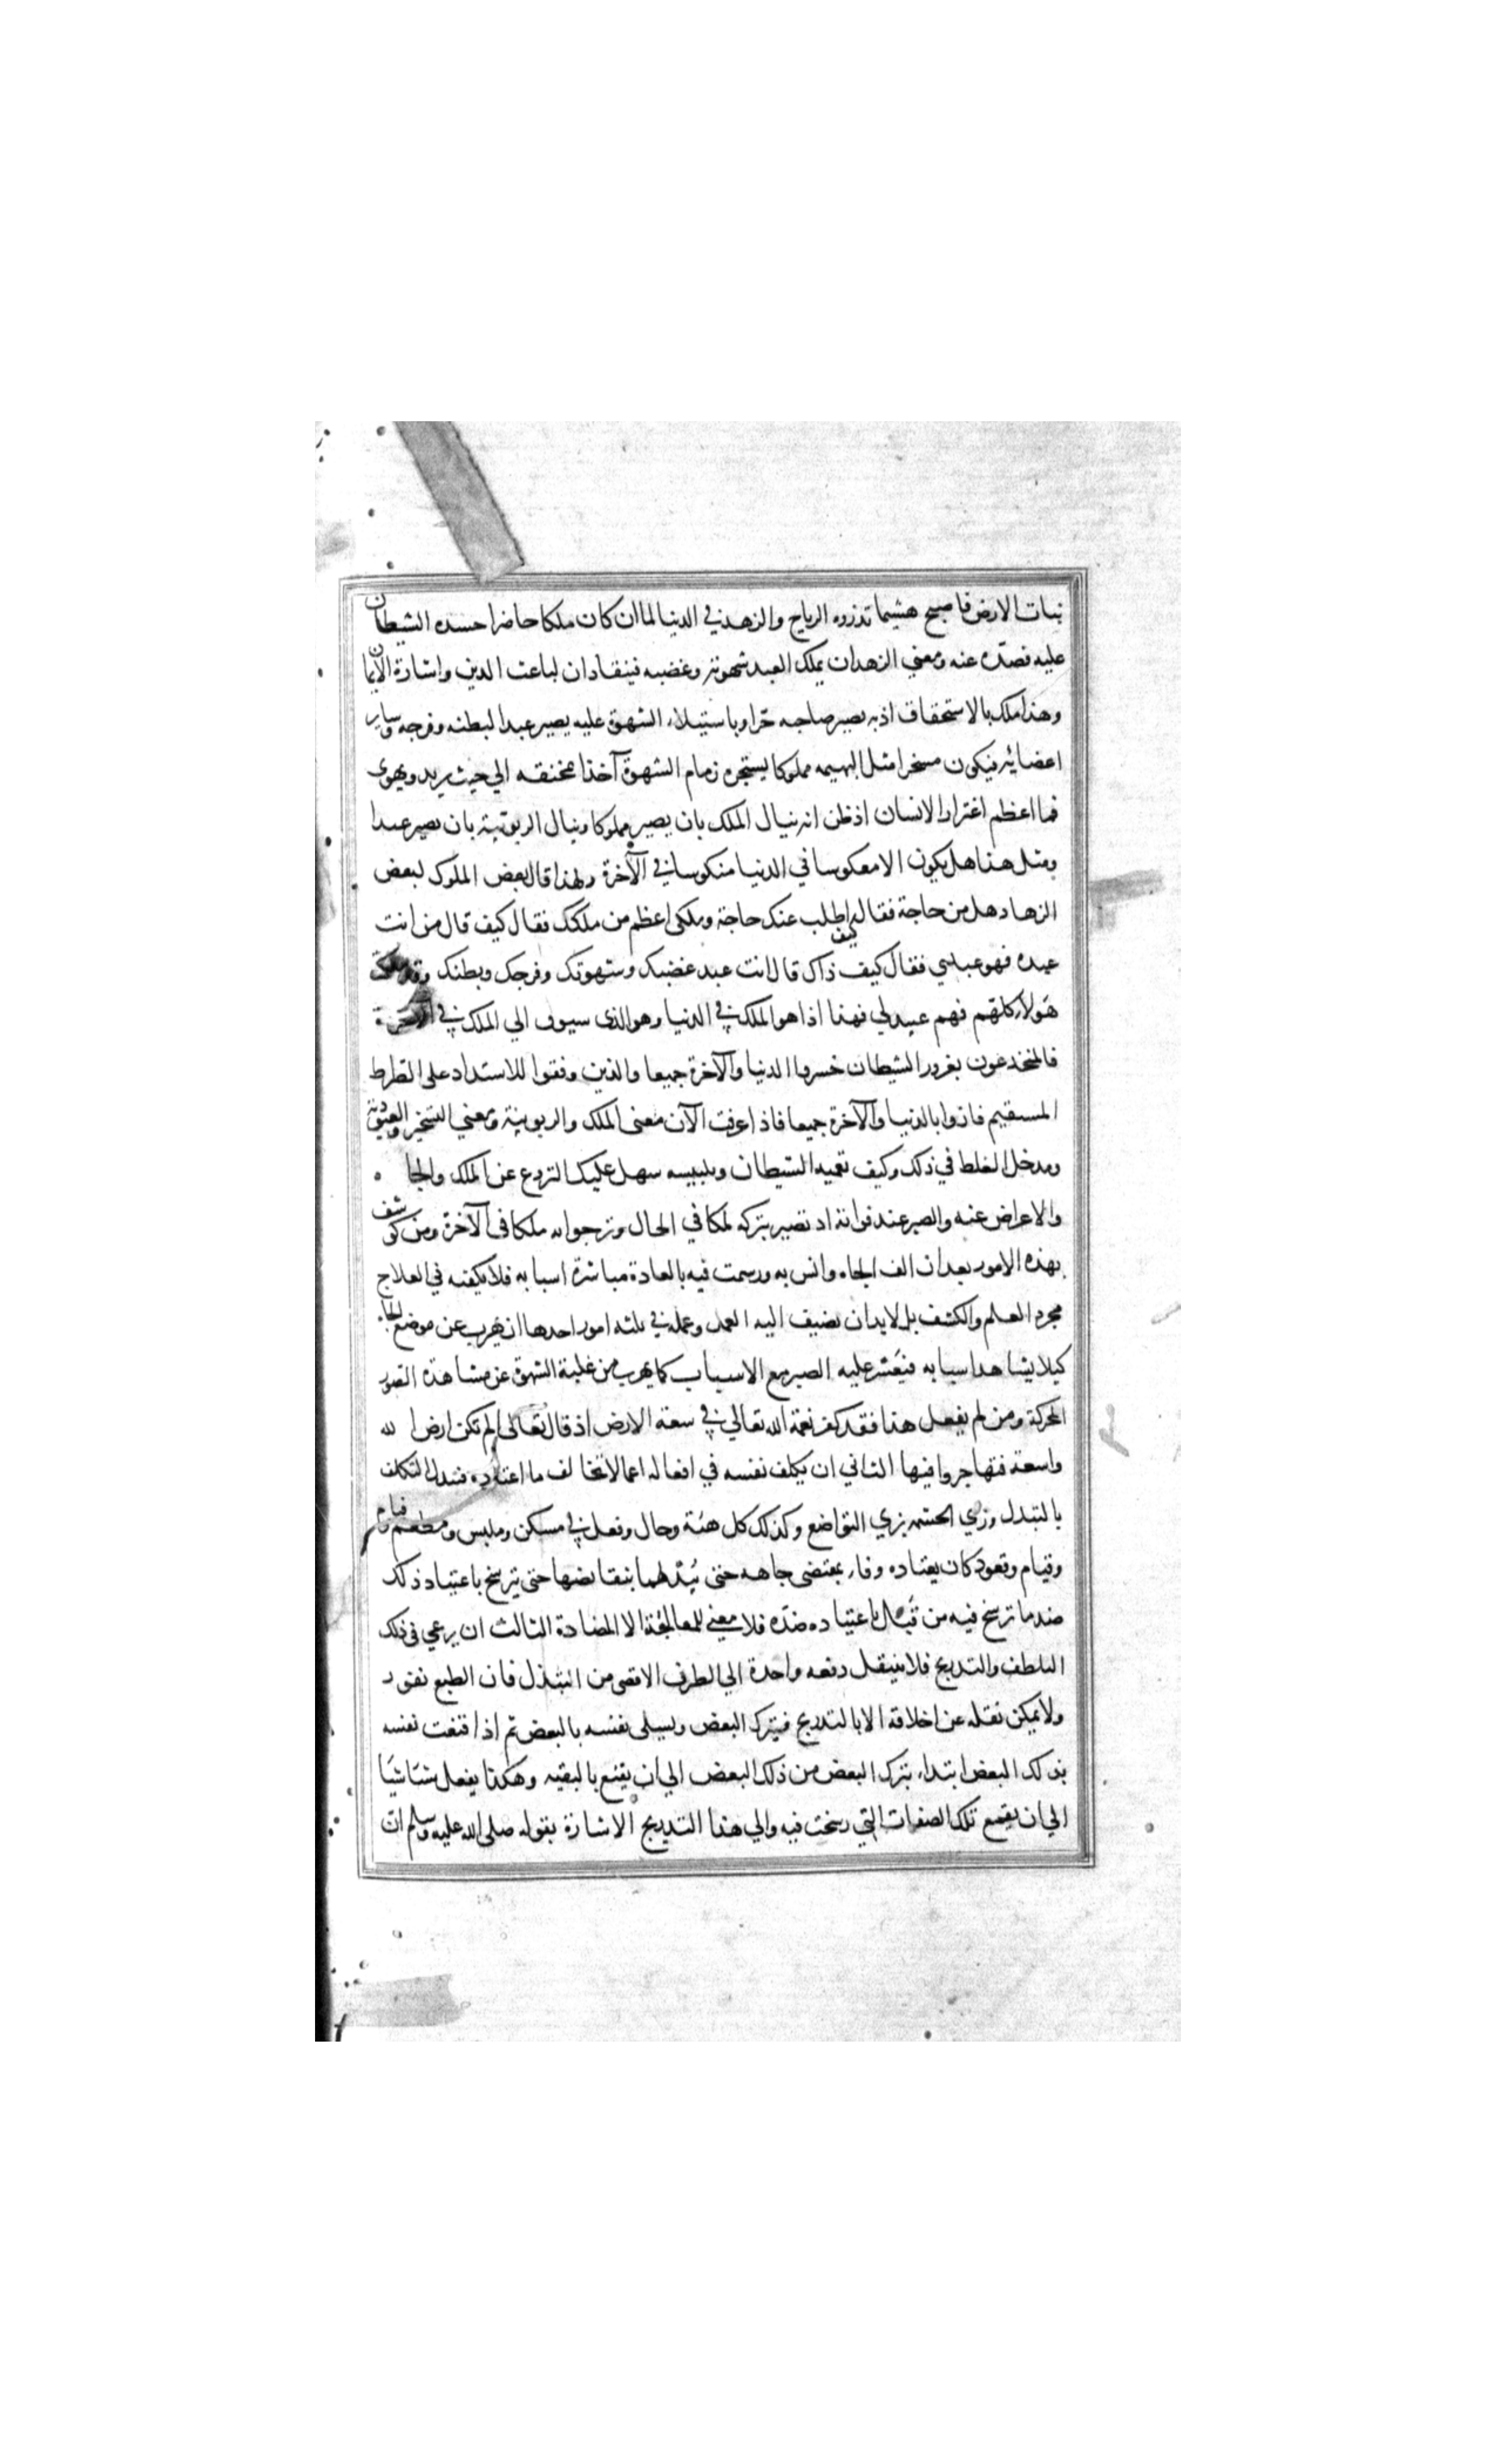 نبات الارض فاصبح هشيما تذروه الرياح والزهد في الدنيا لما ان كان ملكا حاضرا حسده الشيطان
عليه فصدّه عنه ومعني الزهد ان يملك العبد شهوته وغضبه فينقادان لباعث الدين واشارة الايمان
وهذا ملك بالاستحقاق اذ به يصير صاحبه حرّا وباستيلاء الشهوة عليه يصير عبدا لبطنه وفرجه وساير
اعضائه فيكون مسخرا مثل البهيمه مملوكا يستجره زمام الشهوة آخذا بمخنقه الي حيث يريد ويهوى
فما اعظم اغترار الانسان اذ ظن انه ينال الملك بان يصير مملوكا وينال الربوبية بان يصير عبدا
ومثل هذا هل يكون الا معكوسا في الدنيا منكوسا في الآخرة ولهذا قال بعض الملوك لبعض
الزهاد هل من حاجة فقال كيف اطلب عنك حاجة وملكي اعظم من ملكك فقال كيف قال من انت
عبده فهو عبد لي فقال كيف ذاك قال انت عبد غضبك وشهوتك وفرجك وبطنك وقد ملكت
هولاء كلهم فهم عبيد لي فهذا اذا هو الملك في الدنيا وهو الذي سيوف الي الملك في الآخرة
فالمنخدعون بغرور الشيطان خسروا الدنيا والآخرة جميعا والذين وفقوا للاستداد على الصراط
المستقيم فازوا بالدنيا والآخرة جميعا فاذا عرفت الآن معنى الملك والربوبية ومعني التسخير والعبودية
ومدخل الغلط في ذلك وكيف تعمية الشيطان وتلبيسه سهل عليك النزوع عن الملك والجاه
والاعراض عنه والصبر عند فواته اذ تصير بتركه ملكا في الحال وترجوا به ملكا في الآخرة ومن كوشف
بهذه الامور بعد ان الف الجاه وانس به ورسخت فيه بالعادة مباشرة اسبابه فلا يكفيه في العلاج
مجرد العلم والكشف بل لا بد ان يضيف اليه العمل وعمله في ثلثه امور احدها ان يهرب عن موضع الجاه
كيلا يشاهد اسبابه فيعسر عليه الصبر مع الاسباب كما يهرب من غلبة الشهوة عن مشاهدة الصور
المحركة ومن لم يفعل هذا فقد كفر نعمة الله تعالي في سعة الارض اذ قال تعالى الم تكن ارض الله
واسعة فتهاجروا فيها الثاني ان يكلف نفسه في افعاله اعمالا تخالف ما اعتاده فيبدل التكلف
بالتبذل وزي الحشمه بزي التواضع وكذلك كل هيئة وحال وفعل في مسكن وملبس ومطعم وقيام
وقيام وقعود كان يعتاده وفاء بمقتضى جاهه حتى يبدلها بنقائضها حتى يترسخ باعتياد ذلك
ضد ما ترسخ فيه من قبل باعتياده ضدّه فلا معني للمعالجة الا المضادة الثالث ان يرعي في ذلك
التلطف والتدريج فلا ينتقل دفعه واحدة الي الطرف الاقصى من التبذل فان الطبع نفور
ولا يمكن نقله عن اخلاقه الا بالتدريج فيترك البعض ويسلى نفسه بالبعض ثم اذا قنعت نفسه
بذلك البعض ابتداء بترك البعض من ذلك البعض الي ان يقنع بالبقيه وهكذا يفعل شيئا شيئا
الي ان يقمع تلك الصفات التي رسخت فيه والي هذا التدريج الاشارة بقوله صلى الله عليه وسلم ان